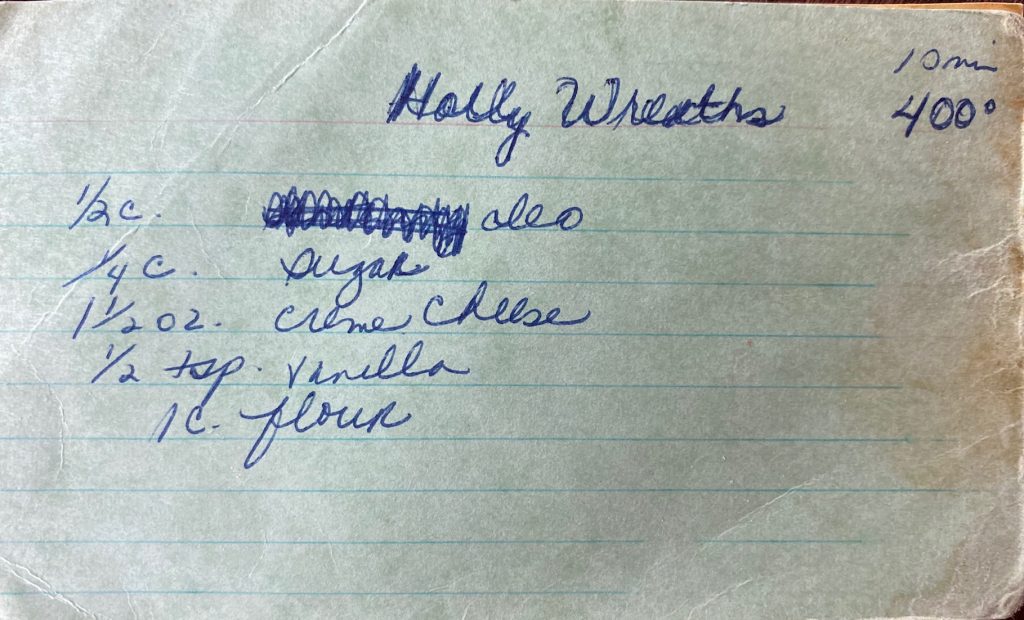 10 min
Holly Wreaths 400°
1/2 c. oleo
1/4 c. sugar
1 1/2 oz. creme cheese
1/2 tsp. vanilla
1 c. flour